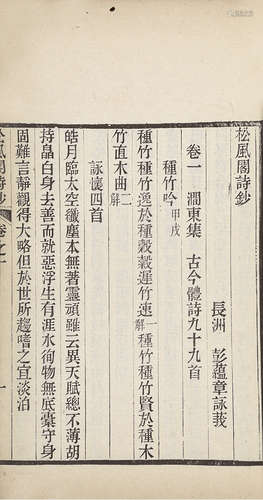 松風閣詩鈔
長洲 彭蘊章詠莪
卷一 澗東集 古今體詩九十九首
種竹吟 甲戌
種竹種竹逸於種穀穀遲竹速一解種竹種竹賢於種木
竹直木曲二解
詠懷四首
皓月臨太空纖塵本無著靈頑雖云異天賦總不薄胡
持皛白身去善而就惡浮生有涯水徇物無底橐守身
固難言靜觀得大略但於世所趨嗜之宜淡泊
松風閣詩鈔 卷之一 一